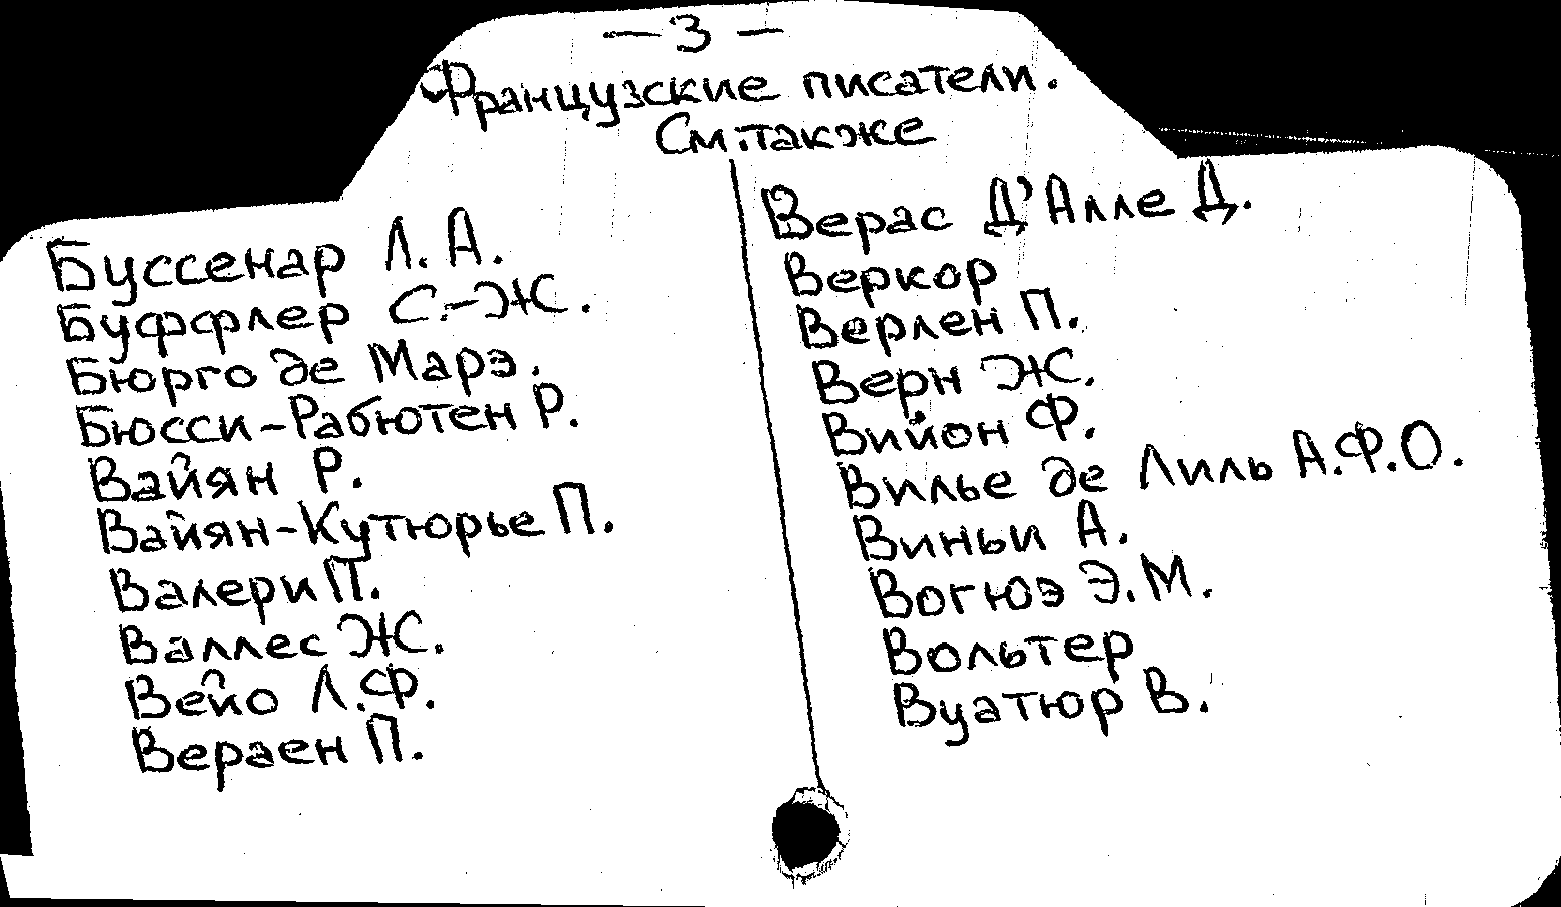 — 3 —
Французские писатели.
См. также
Буссенар Л. А.
Буффлер С.-Ж.
Бюрго де Марэ.
Бюсси-Рабютен Р.
Вайян Р.
Вайян-Кутюрье П.
Валери П.
Валлес Ж.
Вейо Л.Ф.
Вераен П.
Верас Д'Алле Д.
Веркор
Верлен П.
Верн Ж.
Вийон Ф.
Вилье де Лиль А.Ф.О.
Виньи А.
Вогюэ Э.М.
Вольтер
Вуатюр В.